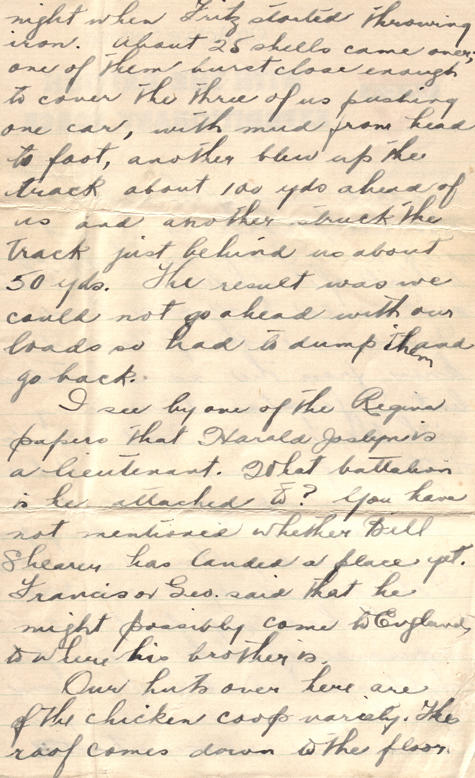 night when Fritz started throwing
iron. About 25 shells came over,
one of them burst close enough
to cover the three of us pushing
one car, with mud from head
to foot, another blew up the
track about 100 yds ahead of
us and another struck the
track just behind us about
50 yds. The result was we
could not go ahead with our
loads so had to dump them and
go back.
I see by one of the Regina
papers that Harald Joslyn is
a lieutenant. What battalion
is he attached to? You have
not mentioned whether Bill
Shearer has landed a place yet.
Francis or Geo. said that he
might possibly come to England,
to where his brother is.
Our huts over here are
of the chicken coop variety. The
roof comes down to the floor